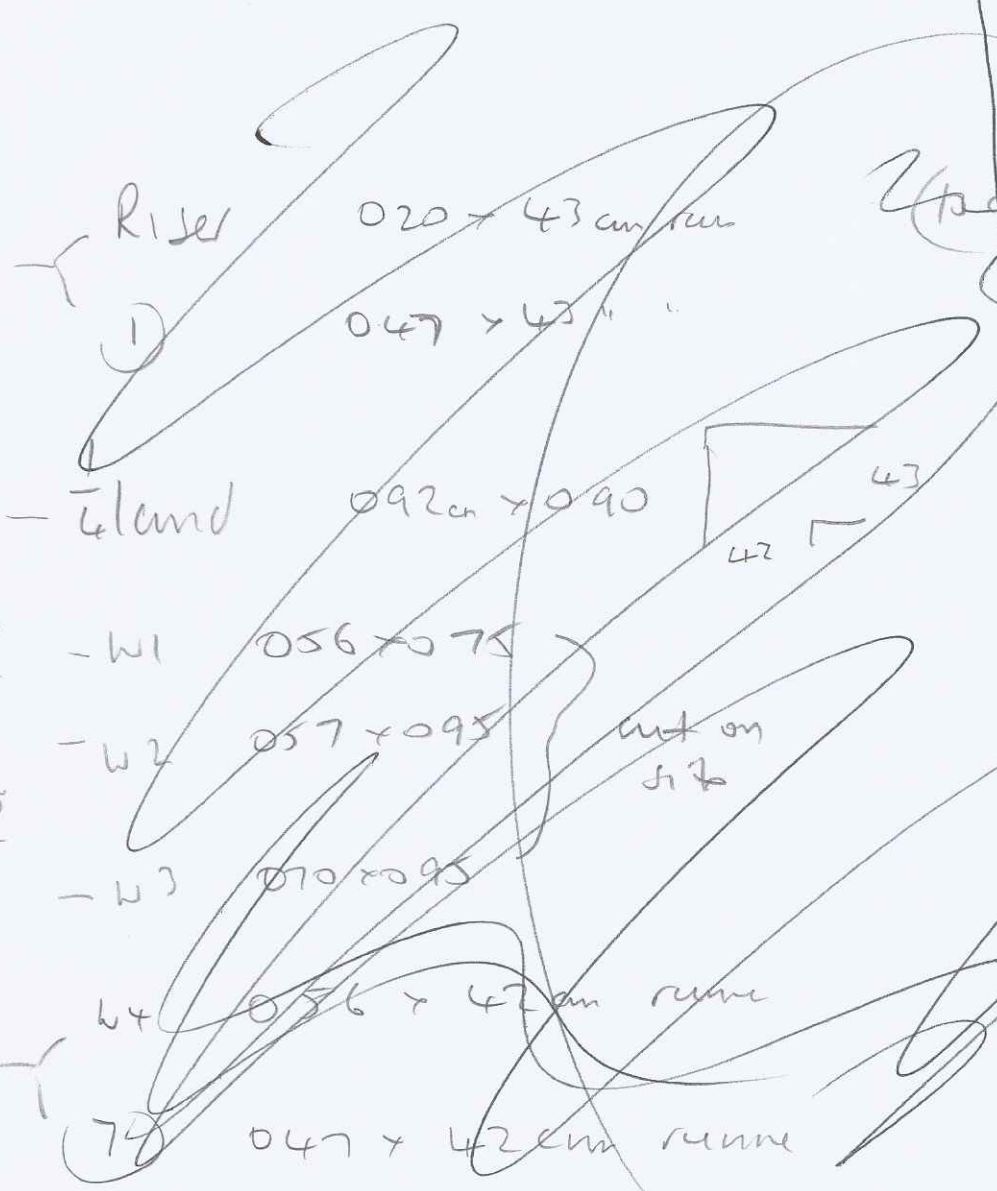 Riser 020 x 43 cm run
① 047 x 43 " "
- ¼ land 092cm x 090
43
42
- W1 056 x 075
- W2 057 x 095
cut on
site
- W3 070 x 095
W4 056 x 42 cm runne
047 x 42 cm runne